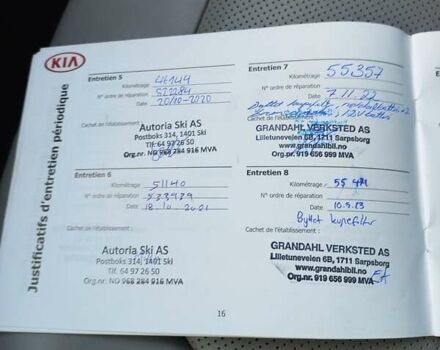 KIA
Justificatifs d'entretien périodique
Entretien 5
Kilométrage : 46149
N° ordre de réparation : 522284
Date : 20/10-2020
Cachet de l'établissement :
Autoria Ski AS
Postboks 314, 1401 Ski
Tlf. 64 97 26 50
Org.nr. NO 968 284 916 MVA
Entretien 6
Kilométrage : 51140
N° ordre de réparation : 533939
Date : 18.10.2021
Cachet de l'établissement :
Autoria Ski AS
Postboks 314, 1401 Ski
Tlf. 64 97 26 50
Org.nr. NO 968 284 916 MVA
Entretien 7
Kilométrage : 55357
N° ordre de réparation :
Date : 7.11.22
Byttet kupefilter,
12V batteri
Cachet de l'établissement :
GRANDAHL VERKSTED AS
Lilletuneveien 6B, 1711 Sarpsborg
www.grandahlbil.no
Org.nr. 919 656 999 MVA
Entretien 8
Kilométrage : 55 471
N° ordre de réparation :
Date : 10.5.23
Byttet kupefilter
Cachet de l'établissement :
GRANDAHL VERKSTED AS
Lilletuneveien 6B, 1711 Sarpsborg
www.grandahlbil.no
Org.nr. 919 656 999 MVA
16